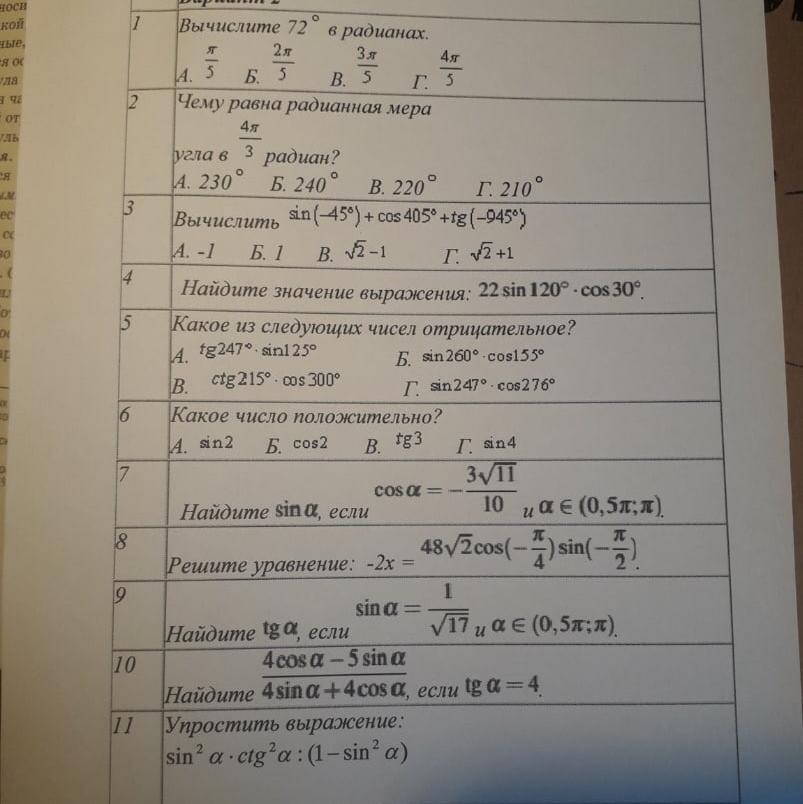 Вариант 2
1 Вычислите 72° в радианах.
А. π/5 Б. 2π/5 В. 3π/5 Г. 4π/5
2 Чему равна радианная мера
угла в 4π/3 радиан?
А. 230° Б. 240° В. 220° Г. 210°
3 Вычислить sin(−45°)+cos405°+tg(−945°)
А. -1 Б. 1 В. √2−1 Г. √2+1
4 Найдите значение выражения: 22 sin 120° · cos 30°.
5 Какое из следующих чисел отрицательное?
А. tg247° · sin125° Б. sin260° · cos155°
В. ctg215° · cos300° Г. sin247° · cos276°
6 Какое число положительно?
А. sin2 Б. cos2 В. tg3 Г. sin4
7 Найдите sin α, если cos α = −3√11/10 и α ∈ (0,5π;π).
8 Решите уравнение: -2x = 48√2cos(−π/4)sin(−π/2).
9 Найдите tg α, если sin α = 1/√17 и α ∈ (0,5π;π).
10 Найдите (4cos α − 5 sin α)/(4sin α + 4cos α), если tg α = 4.
11 Упростить выражение:
sin² α · ctg² α : (1 − sin² α)